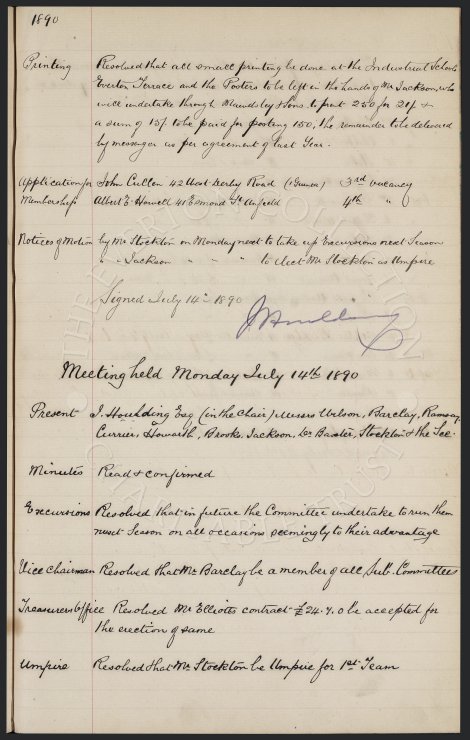 1890
Printing Resolved that all small printing be done at the Industrial Schools
Everton Terrace and the Posters to be left in the hands of Mr Jackson, who
will undertake through Maudsley & Sons to print 250 for 20/- &
a sum of 15/- to be paid for posting 150, the remainder to be delivered
by messenger as per agreement of last Year.
Application for John Cullen 42 West Derby Road 3rd vacancy
Membership Albert E. Howell 41 Esmond St Anfield 4th "
Notices of Motion by Mr Stockton on Monday next to take up Excursions next Season
" " Jackson " " " to elect Mr Stockton as Umpire
Signed July 14th 1890
J Houlding
Meeting held Monday July 14th 1890
Present J. Houlding Esq (in the Chair) Messrs Wilson, Barclay, Ramsay
Currier, Howarth, Brooks, Jackson, Dr Baxter, Stockton & the Sec.
Minutes Read & confirmed
Excursions Resolved that in future the Committee undertake to run them
next Season on all occasions seemingly to their advantage
Vice Chairman Resolved that Mr Barclay be a member of all Sub. Committees
Treasurers Office Resolved Mr Elliotts contract £24.7.0 be accepted for
the erection of same
Umpire Resolved that Mr Stockton be Umpire for 1st Team
THE EVERTON COLLECTION
CHARITABLE TRUST